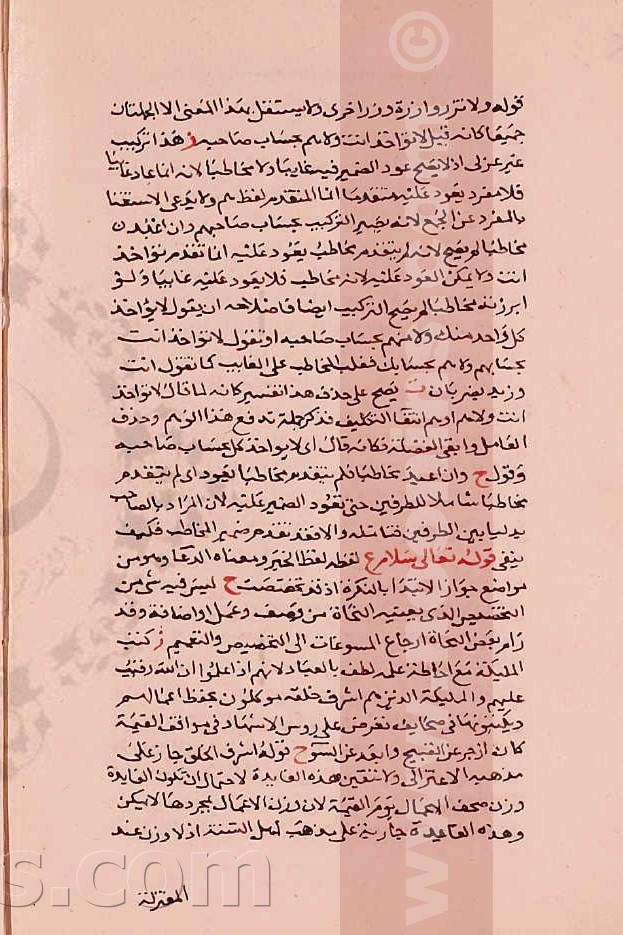 قوله ولا تزر وازرة وزر اخرى ولا يستقل بهذا المعنى الا الجملتان
جميعا كانه قيل لا تواخذ انت ولا هم بحساب صاحبه ز هذا تركيب
غير عربى اذ لا يصح عود الضمير فيه غايبا ولا مخاطبا لانه ان عاد غايبا
فلا مفرد يعود عليه متقدما انما المتقدم لفظ هم ولا يدعى الاستغنا
بالمفرد عن الجمع لانه يصير التركيب بحساب صاحبهم وان اعيد
مخاطبا لم يصح لانه لم يتقدم مخاطب يعود عليه انما تقدم تواخذ
انت ولا يمكن العود عليه لانه مخاطب فلا يعود عليه غايبا ولو
ابرزته مخاطبا لم يصح التركيب ايضا فاصلاحه ان يقول لا يواخذ
كل واحد منك ولا منهم بحساب صاحبه او تقول لا تواخذ انت
بحسابهم ولا هم بحسابك فغلب المخاطب على الغايب كما تقول انت
وزيد يضربان يصح على حذف هذا التفسير كانه لما قال لا تواخذ
انت ولا هم اوهم انتفا التكليف فذكر جملة تدفع هذا الوهم وحذف
العامل وابقى الفضلة فكانه قال اى لا يواخذ كل بحساب صاحبه
وقول ح وان اعيد مخاطبا فلم يتقدم مخاطبا يعود اى لم يتقدم
مخاطبا شاملا للطرفين حتى تعود الضمير عليه لان المراد بالصاحب
الطرفين والا فقد تقدم ضمير المخاطب فكيف
ينفى قوله تعالى سلام ع لفظه لفظ الخبر ومعناه الدعا وهو من
مواضع جواز الابتدا بالنكرة اذ قد تخصصت ح ليس فيه شى من
التخصيص الذى يعينه النحاة من وصف وعمل واضافة وقد
رام بعض النحاة ارجاع المسوغات الى التخصيص والتعميم ز كتب
المليكة مع احاطة علمه لطف بالعباد لانهم اذا علموا ان الله رقيب
عليهم والمليكة الذين هم اشرف خلقه موكلون بحفظ اعمالهم
ويكتبونها فى صحايف تعرض على روس الاشهاد فى مواقف القيمة
كان ازجر عن القبيح وابعد عن السو ح قوله اشرف الخلق جار على
مذهبه الاعتزالى ولا تتعين هذه الفايدة لاحتمال ان تكون الفايدة
وزن صحف الاعمال يوم القيمة لان وزن الاعمال بمجردها لا يمكن
وهذه القاعدة جارية على مذهب اهل السنة اذ لا وزن عند
المعتزلة
s.com
www
©